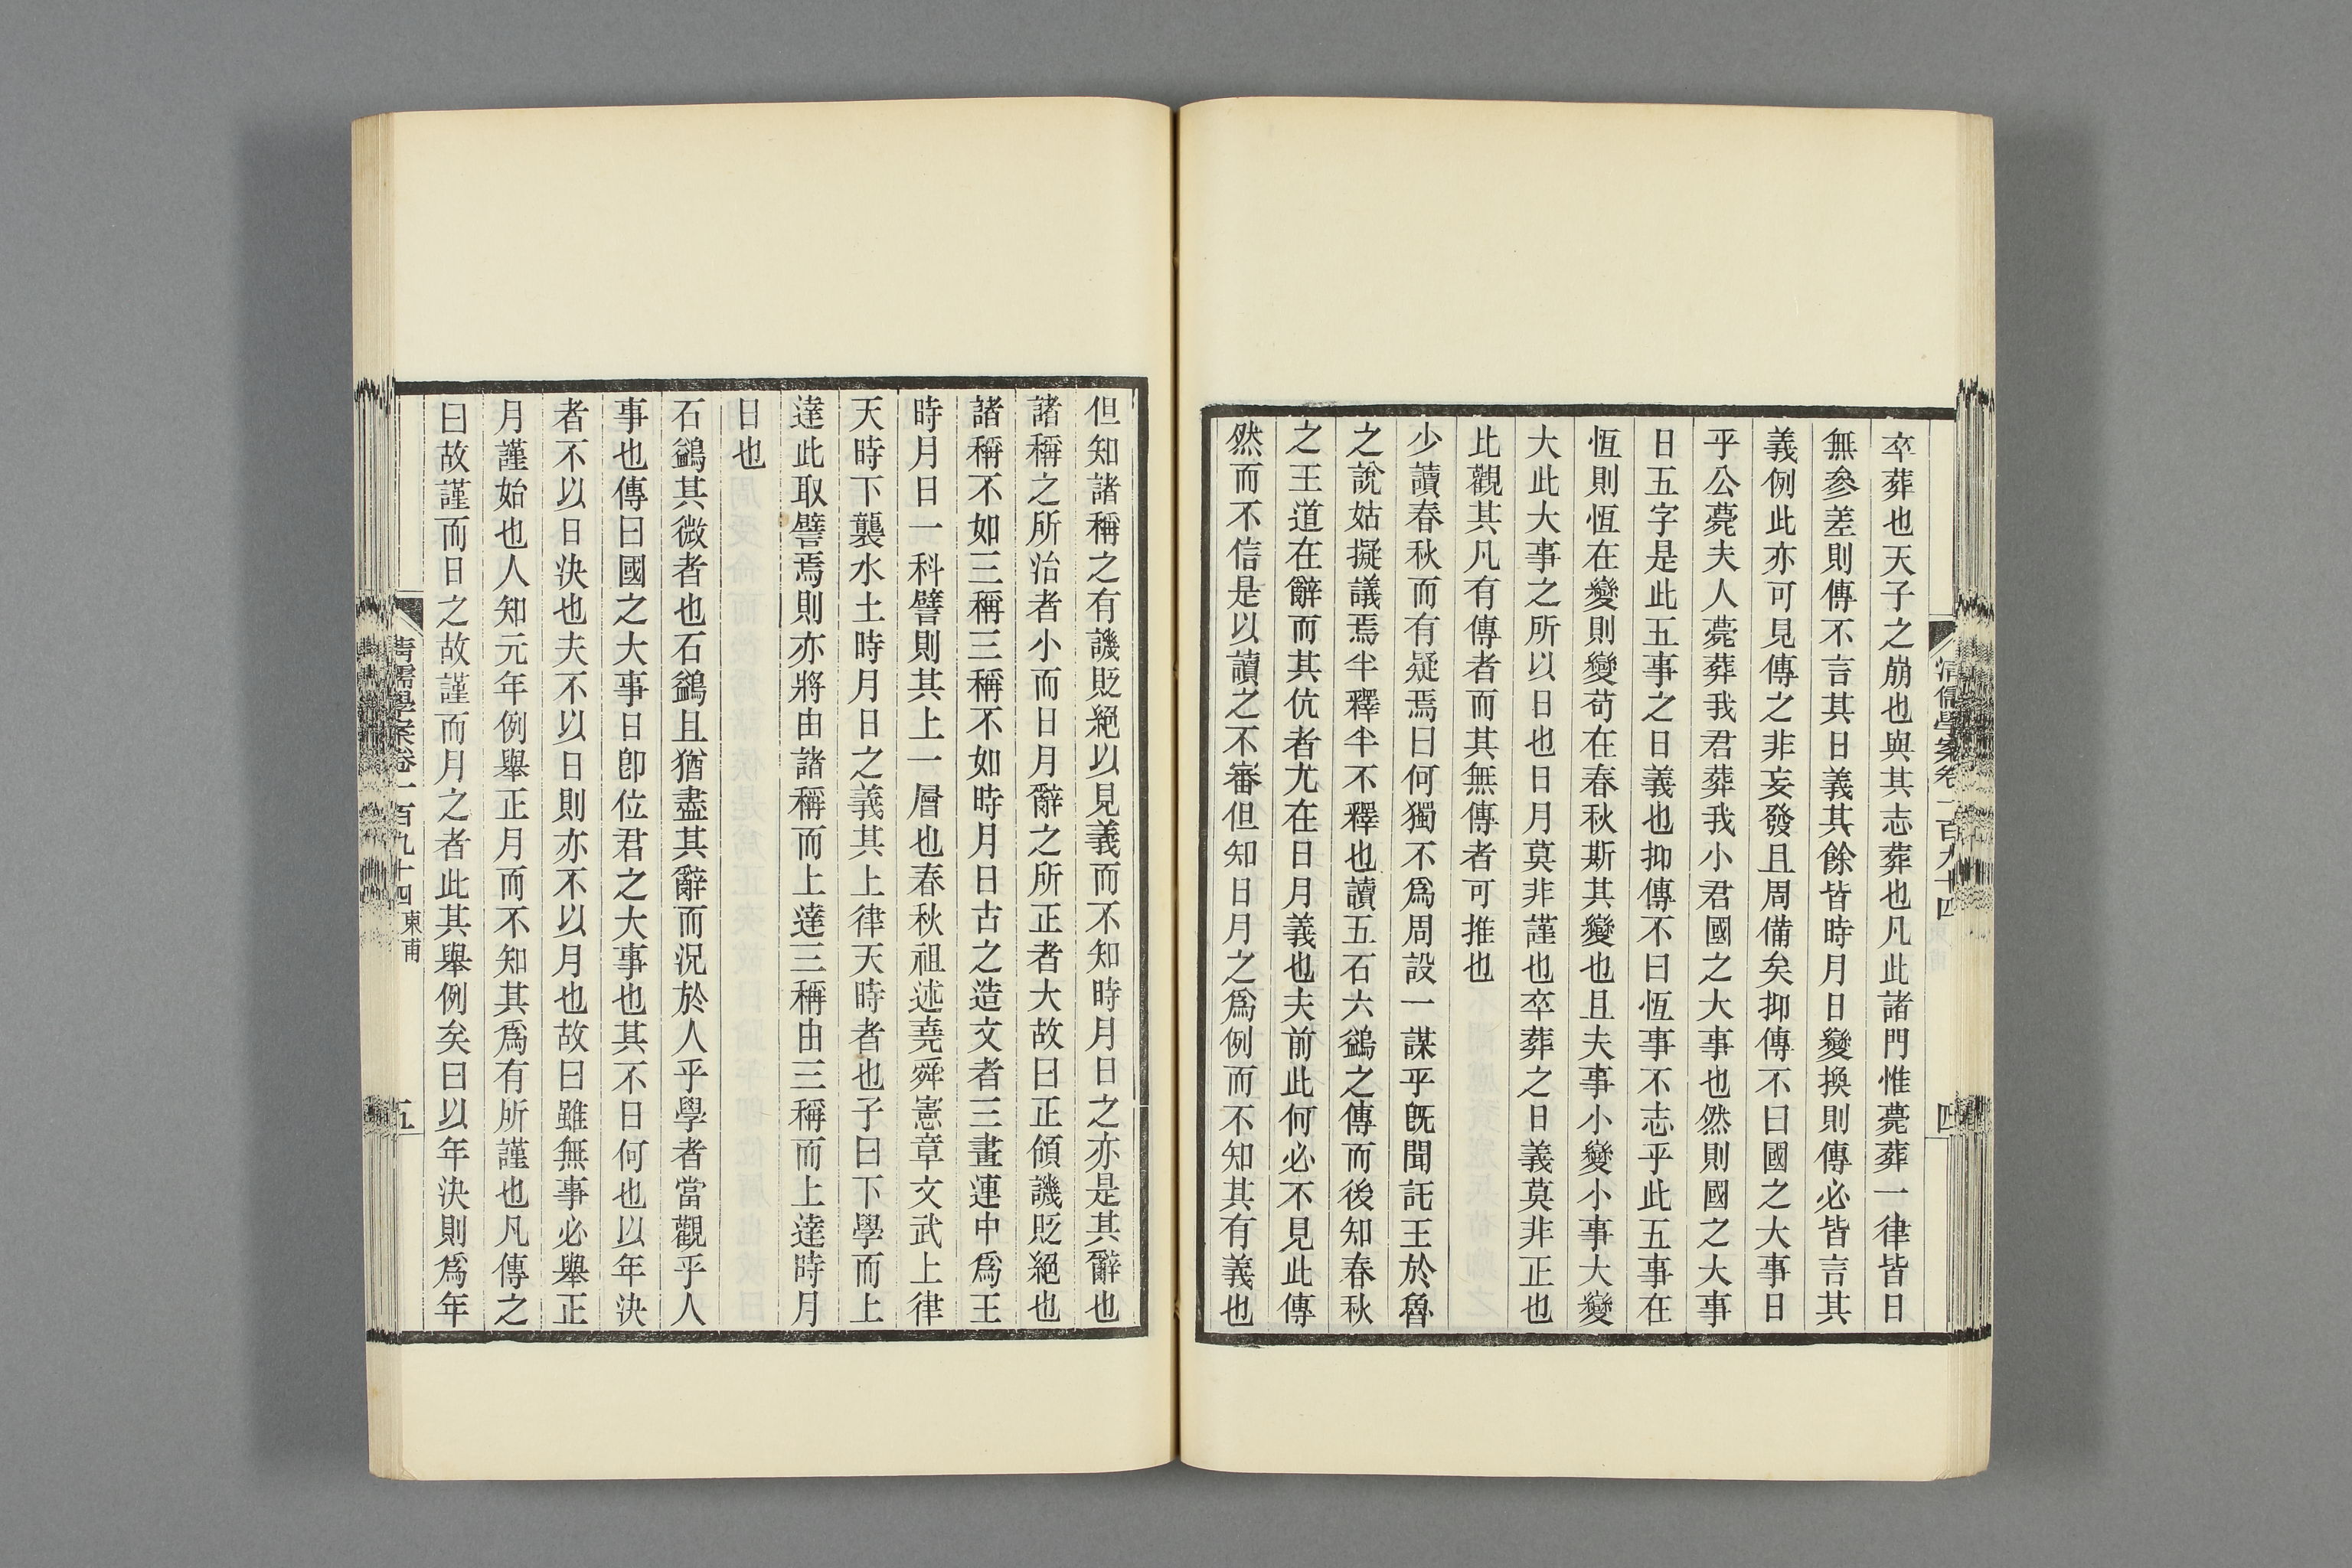 卒葬也天子之崩也與其志葬也凡此諸門惟薨葬一律皆日
無參差則傳不言其日義其餘皆時月日變換則傳必皆言其
義例此亦可見傳之非妄發且周備矣抑傳不曰國之大事日
乎公薨夫人薨葬我君葬我小君國之大事也然則國之大事
日五字是此五事之日義也抑傳不曰恆事不志乎此五事在
恆則恆在變則變苟在春秋斯其變也且夫事小變小事大變
大此大事之所以日也日月莫非謹也卒葬之日義莫非正也
此觀其凡有傳者而其無傳者可推也
少讀春秋而有疑焉曰何獨不爲周設一謀乎旣聞託王於魯
之說姑擬議焉半釋半不釋也讀五石六鷁之傳而後知春秋
之王道在辭而其伉者尤在日月義也夫前此何必不見此傳
然而不信是以讀之不審但知日月之爲例而不知其有義也
清儒學案卷一百九十四
四
但知諸稱之有譏貶絕以見義而不知時月日之亦是其辭也
諸稱之所治者小而日月辭之所正者大故曰正傾譏貶絕也
諸稱不如三稱三稱不如時月日古之造文者三畫連中爲王
時月日一科譬則其上一層也春秋祖述堯舜憲章文武上律
天時下襲水土時月日之義其上律天時者也子曰下學而上
達此取譬焉則亦將由諸稱而上達三稱由三稱而上達時月
日也
石鷁其微者也石鷁且猶盡其辭而況於人乎學者當觀乎人
事也傳曰國之大事日卽位君之大事也其不日何也以年決
者不以日決也夫不以日則亦不以月也故曰雖無事必舉正
月謹始也人知元年例舉正月而不知其爲有所謹也凡傳之
曰故謹而日之故謹而月之者此其舉例矣曰以年決則爲年
清儒學案卷一百九十四 東甫
五